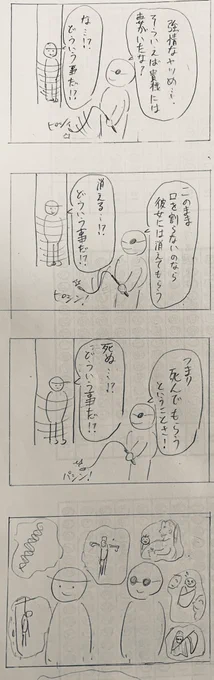 強情なヤツめ…。
そういえば貴様には
な…!?
どういう事だ!!
このまま
口を割らないのなら
彼女には消えてもらう
消える…!?
どういう事だ!?
ピシン!
つまり
死んでもらう
ということさ…!
死ぬ…!?
…どういう事だ!?
パシン!